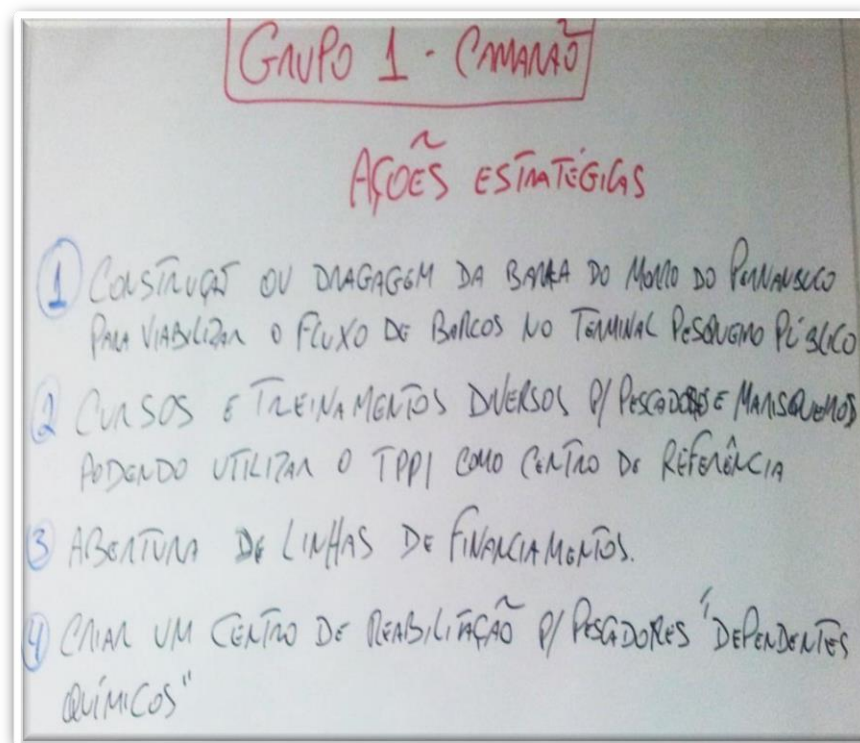 GRUPO 1 - CAMARÃO
AÇÕES ESTRATÉGICAS
1 CONSTRUÇÃO OU DRAGAGEM DA BARRA DO MORRO DO PERNAMBUCO
PARA VIABILIZAR O FLUXO DE BARCOS NO TERMINAL PESQUEIRO PÚBLICO
2 CURSOS E TREINAMENTOS DIVERSOS P/ PESCADORES E MARISQUEIROS
PODENDO UTILIZAR O TPPI COMO CENTRO DE REFERÊNCIA
3 ABERTURA DE LINHAS DE FINANCIAMENTOS.
4 CRIAR UM CENTRO DE REABILITAÇÃO P/ PESCADORES "DEPENDENTES
QUÍMICOS"